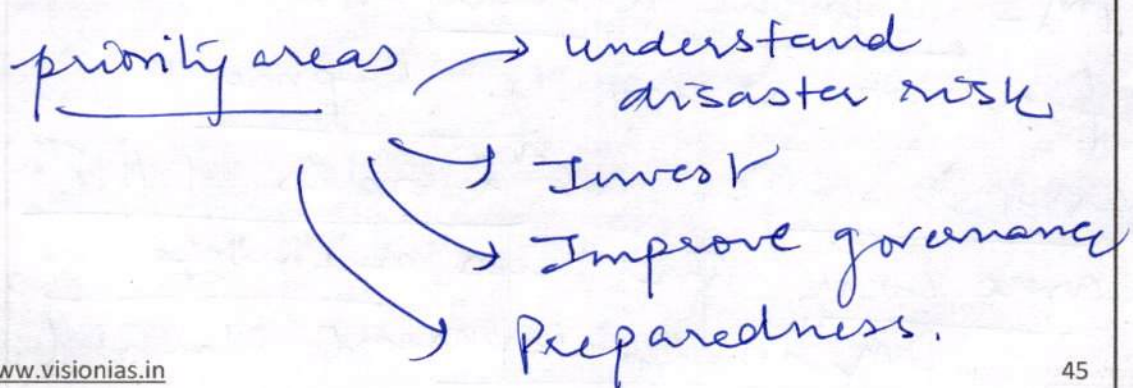 priority areas → understand
disaster risk
→ Invest
→ Improve governance
→ Preparedness.
ww.visionias.in
45